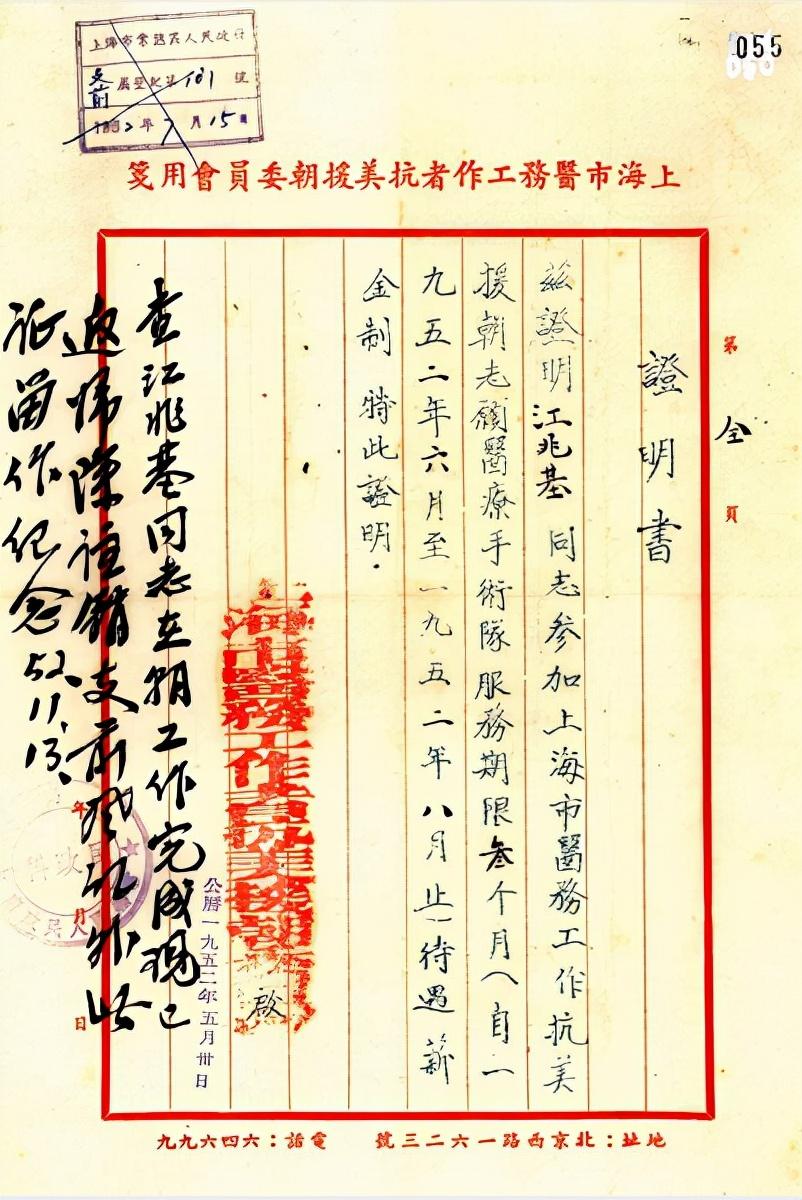 055
上海市余姚区人民政府
支前 居登记第101号
1952年7月15日
上海市醫務工作者抗美援朝委員會用箋
第 全 頁
證明書
茲證明江兆基 同志參加上海市醫務工作抗美
援朝志願醫療手術隊服務期限叁个月(自一
九五二年六月至一九五二年八月止)待遇薪
金制 特此證明.
上海市醫務工作者抗美援朝 啟
公曆一九五二年五月卅日
查江兆基同志在朝工作完成現已
返歸除註銷支前登記外此
证留作纪念 52.11.13.
年 月 日
民政科
地址:北京西路一六二三號 電話:六四六九九